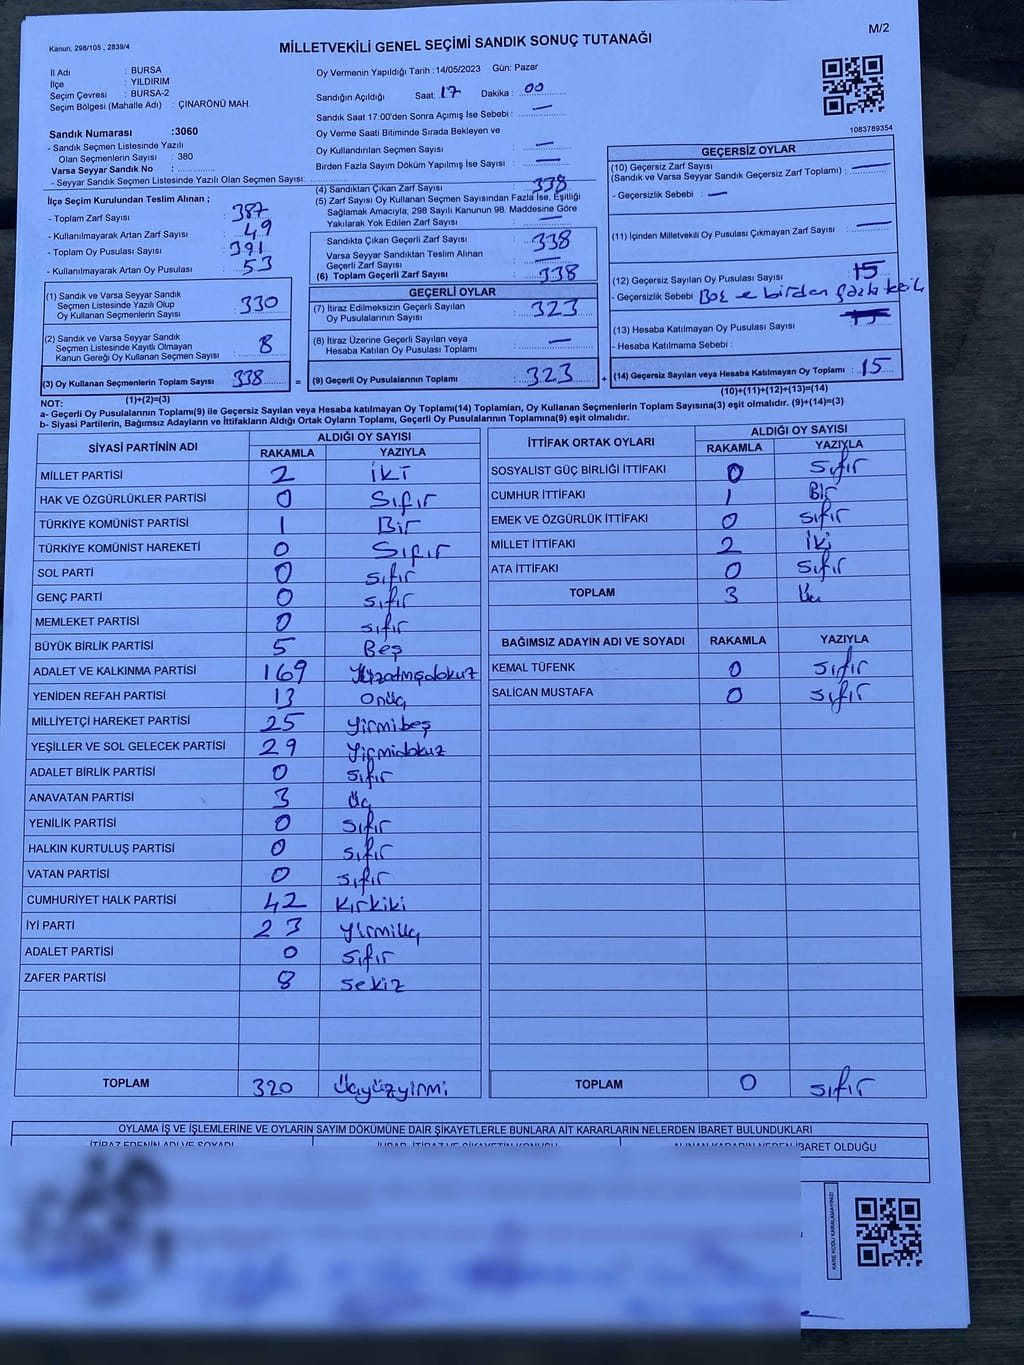 Kanun, 298/105 , 2839/4
M/2
MİLLETVEKİLİ GENEL SEÇİMİ SANDIK SONUÇ TUTANAĞI
İl Adı : BURSA
İlçe : YILDIRIM
Seçim Çevresi : BURSA-2
Seçim Bölgesi (Mahalle Adı) : ÇINARÖNÜ MAH.
Sandık Numarası :3060
- Sandık Seçmen Listesinde Yazılı
Olan Seçmenlerin Sayısı : 380
Varsa Seyyar Sandık No :
- Seyyar Sandık Seçmen Listesinde Yazılı Olan Seçmen Sayısı:
İlçe Seçim Kurulundan Teslim Alınan ;
- Toplam Zarf Sayısı : 387
- Kullanılmayarak Artan Zarf Sayısı : 49
- Toplam Oy Pusulası Sayısı : 391
- Kullanılmayarak Artan Oy Pusulası : 53
(1) Sandık ve Varsa Seyyar Sandık
Seçmen Listesinde Yazılı Olup
Oy Kullanan Seçmenlerin Sayısı : 330
(2) Sandık ve Varsa Seyyar Sandık
Seçmen Listesinde Kayıtlı Olmayan
Kanun Gereği Oy Kullanan Seçmen Sayısı : 8
(3) Oy Kullanan Seçmenlerin Toplam Sayısı : 338
(1)+(2)=(3)
Oy Vermenin Yapıldığı Tarih :14/05/2023 Gün: Pazar
Sandığın Açıldığı Saat: 17 Dakika : 00
Sandık Saat 17:00'den Sonra Açımış İse Sebebi : —
Oy Verme Saati Bitiminde Sırada Bekleyen ve
Oy Kullandırılan Seçmen Sayısı : —
Birden Fazla Sayım Döküm Yapılmış İse Sayısı : —
(4) Sandıktan Çıkan Zarf Sayısı : 338
(5) Zarf Sayısı Oy Kullanan Seçmen Sayısından Fazla İse, Eşitliği
Sağlamak Amacıyla; 298 Sayılı Kanunun 98. Maddesine Göre
Yakılarak Yok Edilen Zarf Sayısı : —
Sandıkta Çıkan Geçerli Zarf Sayısı : 338
Varsa Seyyar Sandıktan Teslim Alınan
Geçerli Zarf Sayısı : —
(6) Toplam Geçerli Zarf Sayısı : 338
GEÇERLİ OYLAR
(7) İtiraz Edilmeksizin Geçerli Sayılan
Oy Pusulalarının Sayısı : 323
(8) İtiraz Üzerine Geçerli Sayılan veya
Hesaba Katılan Oy Pusulası Toplamı : —
= (9) Geçerli Oy Pusulalarının Toplamı : 323 +
1083789354
GEÇERSİZ OYLAR
(10) Geçersiz Zarf Sayısı
(Sandık ve Varsa Seyyar Sandık Geçersiz Zarf Toplamı) : —
- Geçersizlik Sebebi : —
(11) İçinden Milletvekili Oy Pusulası Çıkmayan Zarf Sayısı : —
(12) Geçersiz Sayılan Oy Pusulası Sayısı : 15
- Geçersizlik Sebebi : Boş ve birden fazla
(13) Hesaba Katılmayan Oy Pusulası Sayısı :
- Hesaba Katılmama Sebebi :
(14) Geçersiz Sayılan veya Hesaba Katılmayan Oy Toplamı : 15
(10)+(11)+(12)+(13)=(14)
NOT:
a- Geçerli Oy Pusulalarının Toplamı(9) ile Geçersiz Sayılan veya Hesaba katılmayan Oy Toplamı(14) Toplamları, Oy Kullanan Seçmenlerin Toplam Sayısına(3) eşit olmalıdır. (9)+(14)=(3)
b- Siyasi Partilerin, Bağımsız Adayların ve İttifakların Aldığı Ortak Oyların Toplamı, Geçerli Oy Pusulalarının Toplamına(9) eşit olmalıdır.
SİYASİ PARTİNİN ADI ALDIĞI OY SAYISI
RAKAMLA YAZIYLA
MİLLET PARTİSİ 2 İki
HAK VE ÖZGÜRLÜKLER PARTİSİ 0 Sıfır
TÜRKİYE KOMÜNİST PARTİSİ 1 Bir
TÜRKİYE KOMÜNİST HAREKETİ 0 Sıfır
SOL PARTİ 0 sıfır
GENÇ PARTİ 0 sıfır
MEMLEKET PARTİSİ 0 sıfır
BÜYÜK BİRLİK PARTİSİ 5 Beş
ADALET VE KALKINMA PARTİSİ 169 Yüzatmışdokuz
YENİDEN REFAH PARTİSİ 13 onüç
MİLLİYETÇİ HAREKET PARTİSİ 25 Yirmibeş
YEŞİLLER VE SOL GELECEK PARTİSİ 29 Yirmidokuz
ADALET BİRLİK PARTİSİ 0 sıfır
ANAVATAN PARTİSİ 3 Üç
YENİLİK PARTİSİ 0 sıfır
HALKIN KURTULUŞ PARTİSİ 0 sıfır
VATAN PARTİSİ 0 sıfır
CUMHURİYET HALK PARTİSİ 42 Kırkiki
İYİ PARTİ 23 Yirmiüç
ADALET PARTİSİ 0 sıfır
ZAFER PARTİSİ 8 sekiz
TOPLAM 320 Üçyüzyirmi
İTTİFAK ORTAK OYLARI ALDIĞI OY SAYISI
RAKAMLA YAZIYLA
SOSYALİST GÜÇ BİRLİĞİ İTTİFAKI 0 sıfır
CUMHUR İTTİFAKI 1 Bir
EMEK VE ÖZGÜRLÜK İTTİFAKI 0 sıfır
MİLLET İTTİFAKI 2 İki
ATA İTTİFAKI 0 sıfır
TOPLAM 3 Üç
BAĞIMSIZ ADAYIN ADI VE SOYADI RAKAMLA YAZIYLA
KEMAL TÜFENK 0 sıfır
SALİCAN MUSTAFA 0 sıfır
TOPLAM 0 sıfır
OYLAMA İŞ VE İŞLEMLERİNE VE OYLARIN SAYIM DÖKÜMÜNE DAİR ŞİKAYETLERLE BUNLARA AİT KARARLARIN NELERDEN İBARET BULUNDUKLARI
İTİRAZ EDENİN ADI VE SOYADI İHBAR, İTİRAZ VE ŞİKAYETİN KONUSU ALINAN KARARIN NEDEN İBARET OLDUĞU
KARE KODU KARALAMAYINIZ!